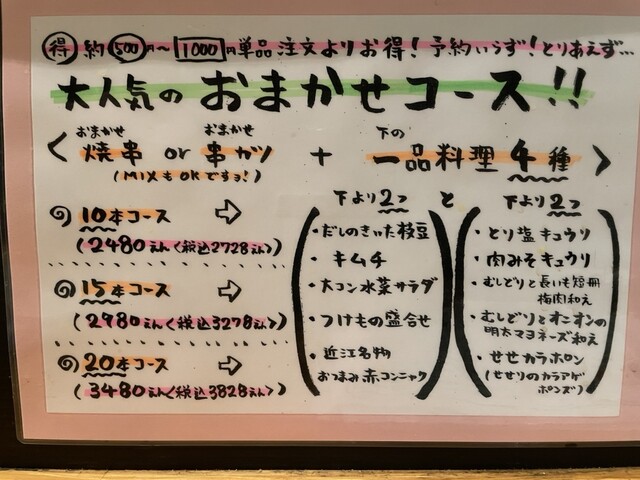 得 約500円〜1000円単品注文よりお得!予約いらず!とりあえず…
大人気の おまかせコース!!
おまかせ おまかせ 下の
〈 焼串 or 串カツ + 一品料理4種 〉
(MIXもOKですョ!)
下より2つ と 下より2つ
10本コース ⇨
(2480えん〈税込2728えん〉)
15本コース ⇨
(2980えん〈税込3278えん〉)
20本コース ⇨
(3480えん〈税込3828えん〉)
・だしのきいた枝豆
・キムチ
・大コン水菜サラダ
・つけもの盛合せ
・近江名物
おつまみ赤コンニャク
・とり塩キュウリ
・肉みそキュウリ
・むしどりと長いも短冊
梅肉和え
・むしどりとオニオンの
明太マヨネーズ和え
・せせカラポン
(せせりのカラアゲ
ポンズ)